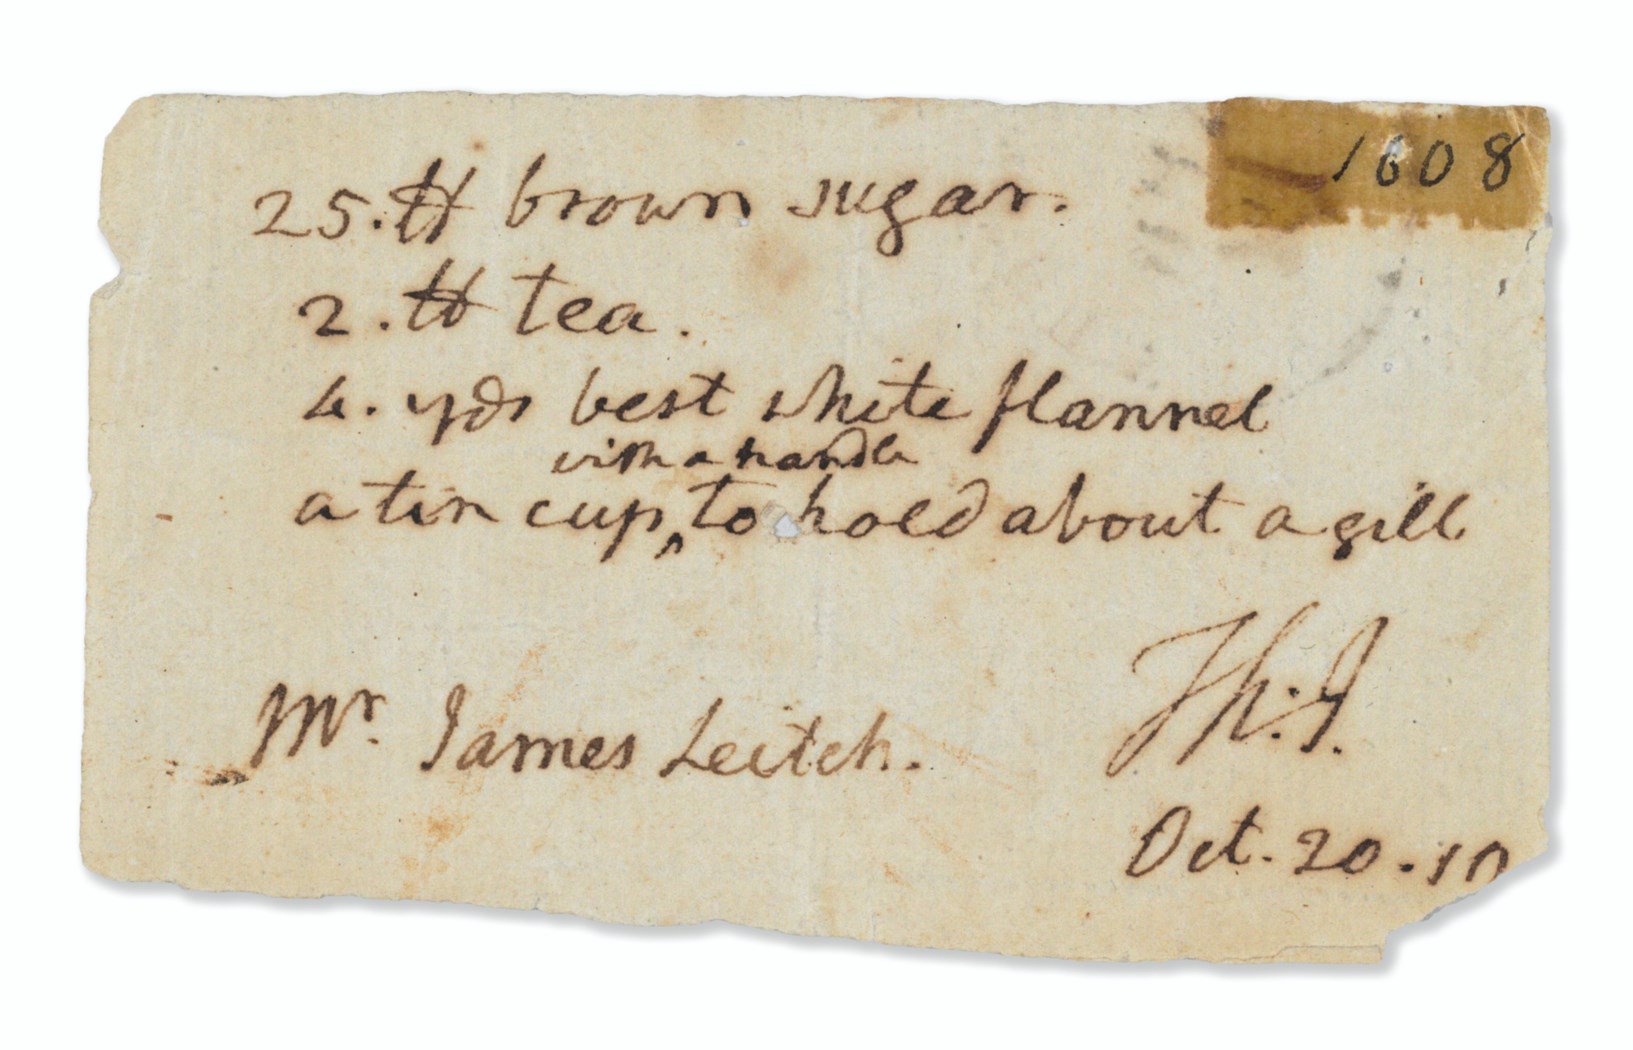 1608
25. ℔ brown sugar.
2. ℔ tea.
4. yds best white flannel
with a handle
a tin cup ‸ to hold about a gill
Th:J.
Mr. James Leitch.
Oct. 20. 10